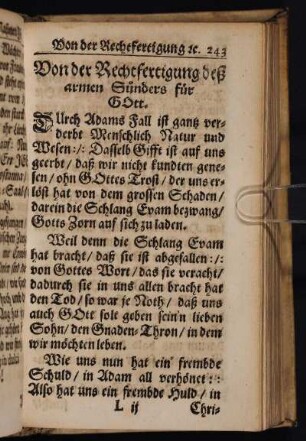 Von der Rechtfertigung ꝛc. 243
Von der Rechtfertigung deß
armen Sünders für
GOtt.
DUrch Adams Fall ist gantz ver-
derbt Menschlich Natur und
Wesen :/: Dasselb Gifft ist auf uns
geerbt / daß wir nicht kundten gene-
sen / ohn GOttes Trost / der uns er-
löst hat von dem grossen Schaden /
darein die Schlang Evam bezwang /
Gotts Zorn auf sich zu laden.
Weil denn die Schlang Evam
hat bracht / daß sie ist abgefallen :/:
von Gottes Wort / das sie veracht /
dadurch sie in uns allen bracht hat
den Tod / so war je Noth / daß uns
auch GOtt solt geben sein'n lieben
Sohn / den Gnaden-Thron / in dem
wir möchten leben.
Wie uns nun hat ein frembde
Schuld / in Adam all verhönet : :
Also hat uns ein frembde Huld / in
L ij
Chri-